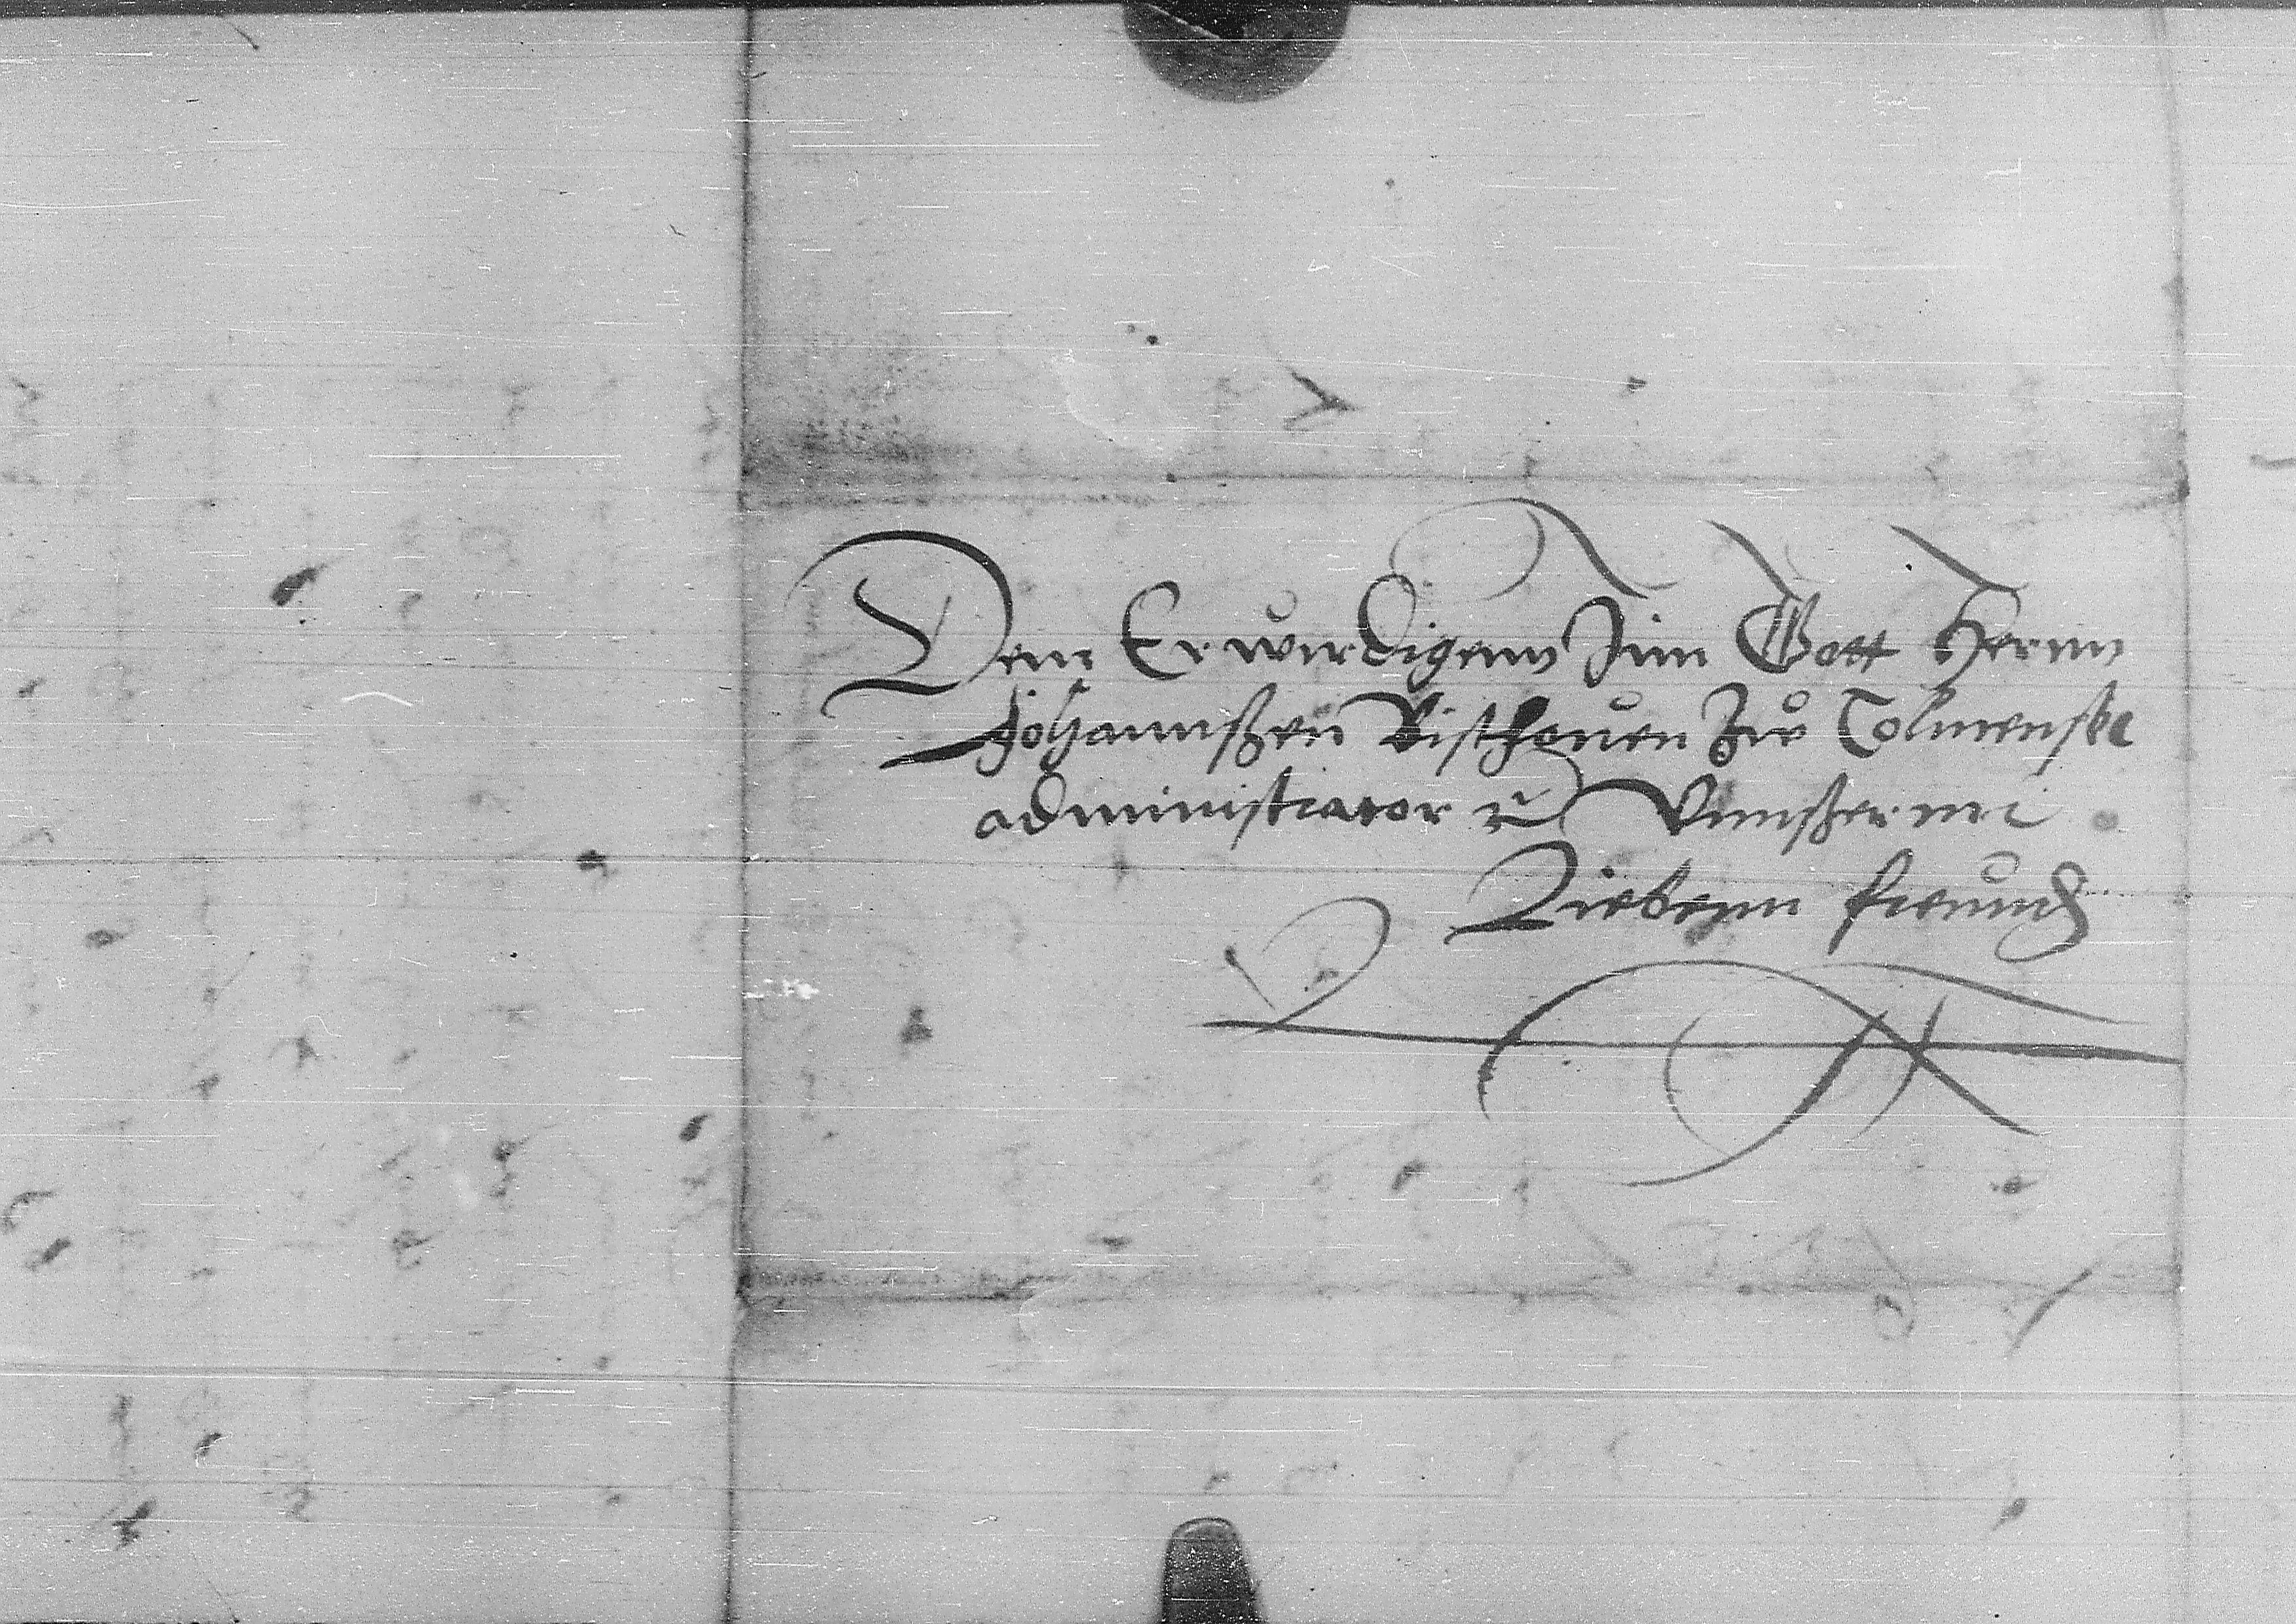 Dem Erwirdigenn Inn Gott Hernn
Johannßen Bischouen Zue Colmensße
administrator ꝛc Vnnßerm
Liebenn freund